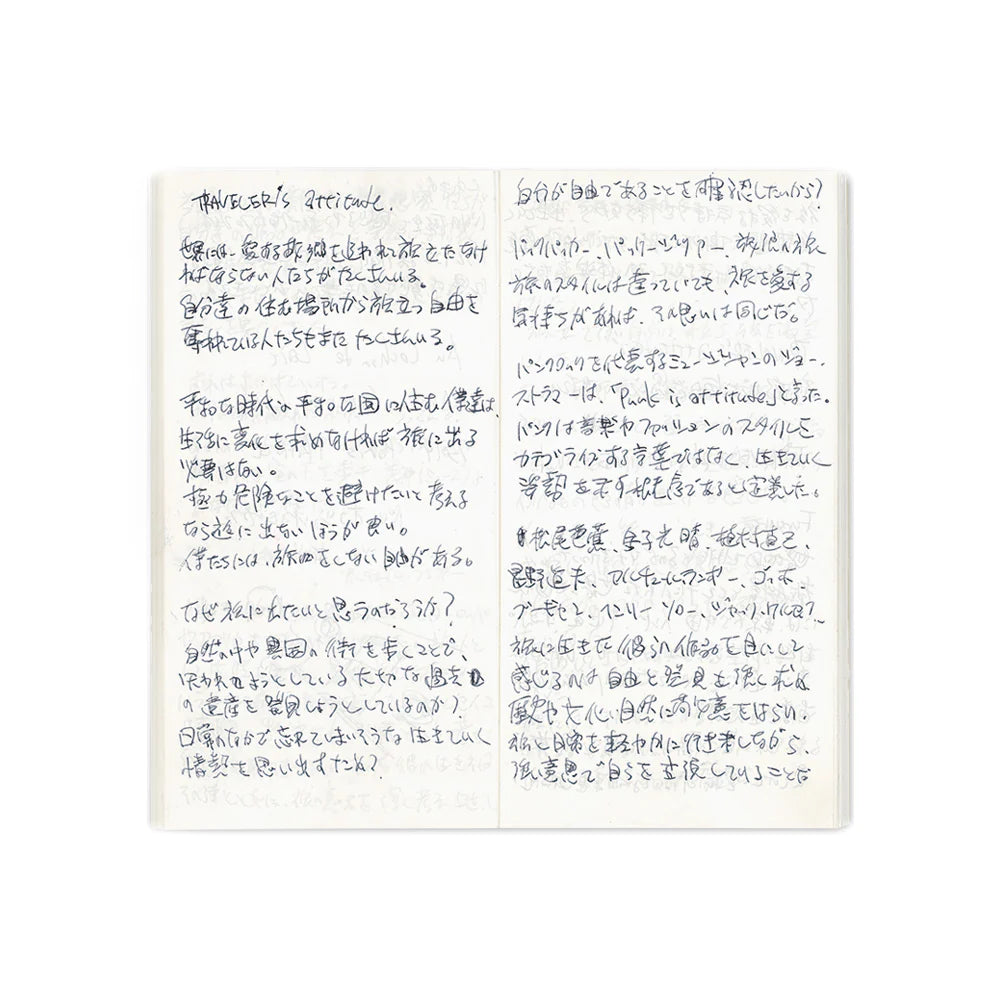 TRAVELER's attitude.
世界には、愛する故郷を追われて旅立たなけ
ればならない人たちがたくさんいる。
自分達の住む場所から旅立つ自由を
奪われている人たちもまたたくさんいる。
平和な時代の平和な国に住む僕達は、
生活に変化を求めなければ旅に出る
必要はない。
極力危険なことを避けたいと考える
なら旅に出ないほうが良い。
僕たちには、旅をしない自由がある。
なぜ旅に出たいと思うのだろうか?
自然の中や異国の街を歩くことで、
失われようとしている大切な過去
の遺産を発見しようとしているのか?
日常のなかで忘れてしまいそうな生きていく
情熱を思い出すため?
自分が自由であることを確認したいから?
バックパッカー、パッケージツアー、放浪の旅
旅のスタイルは違っていても、旅を愛する
気持ちがあれば、その思いは同じだ。
パンクロックを代表するミュージシャンのジョー・
ストラマーは、「Punk is attitude」と言った。
パンクは音楽やファッションのスタイルを
カテゴライズする言葉ではなく、生きていく
姿勢を示す概念であると定義した。
松尾芭蕉、金子光晴、植村直己、
星野道夫、アルチュールランボー、ゴッホ、
ゴーギャン、ヘンリーソロー、ジャック・ケルアック、
旅に生きた彼らの作品を目にして
感じるのは自由と発見を強く求め
歴史や文化、自然に敬意をはらい、
旅と日常を軽やかに行き来しながら、
強い意思で自らを主張していることだ